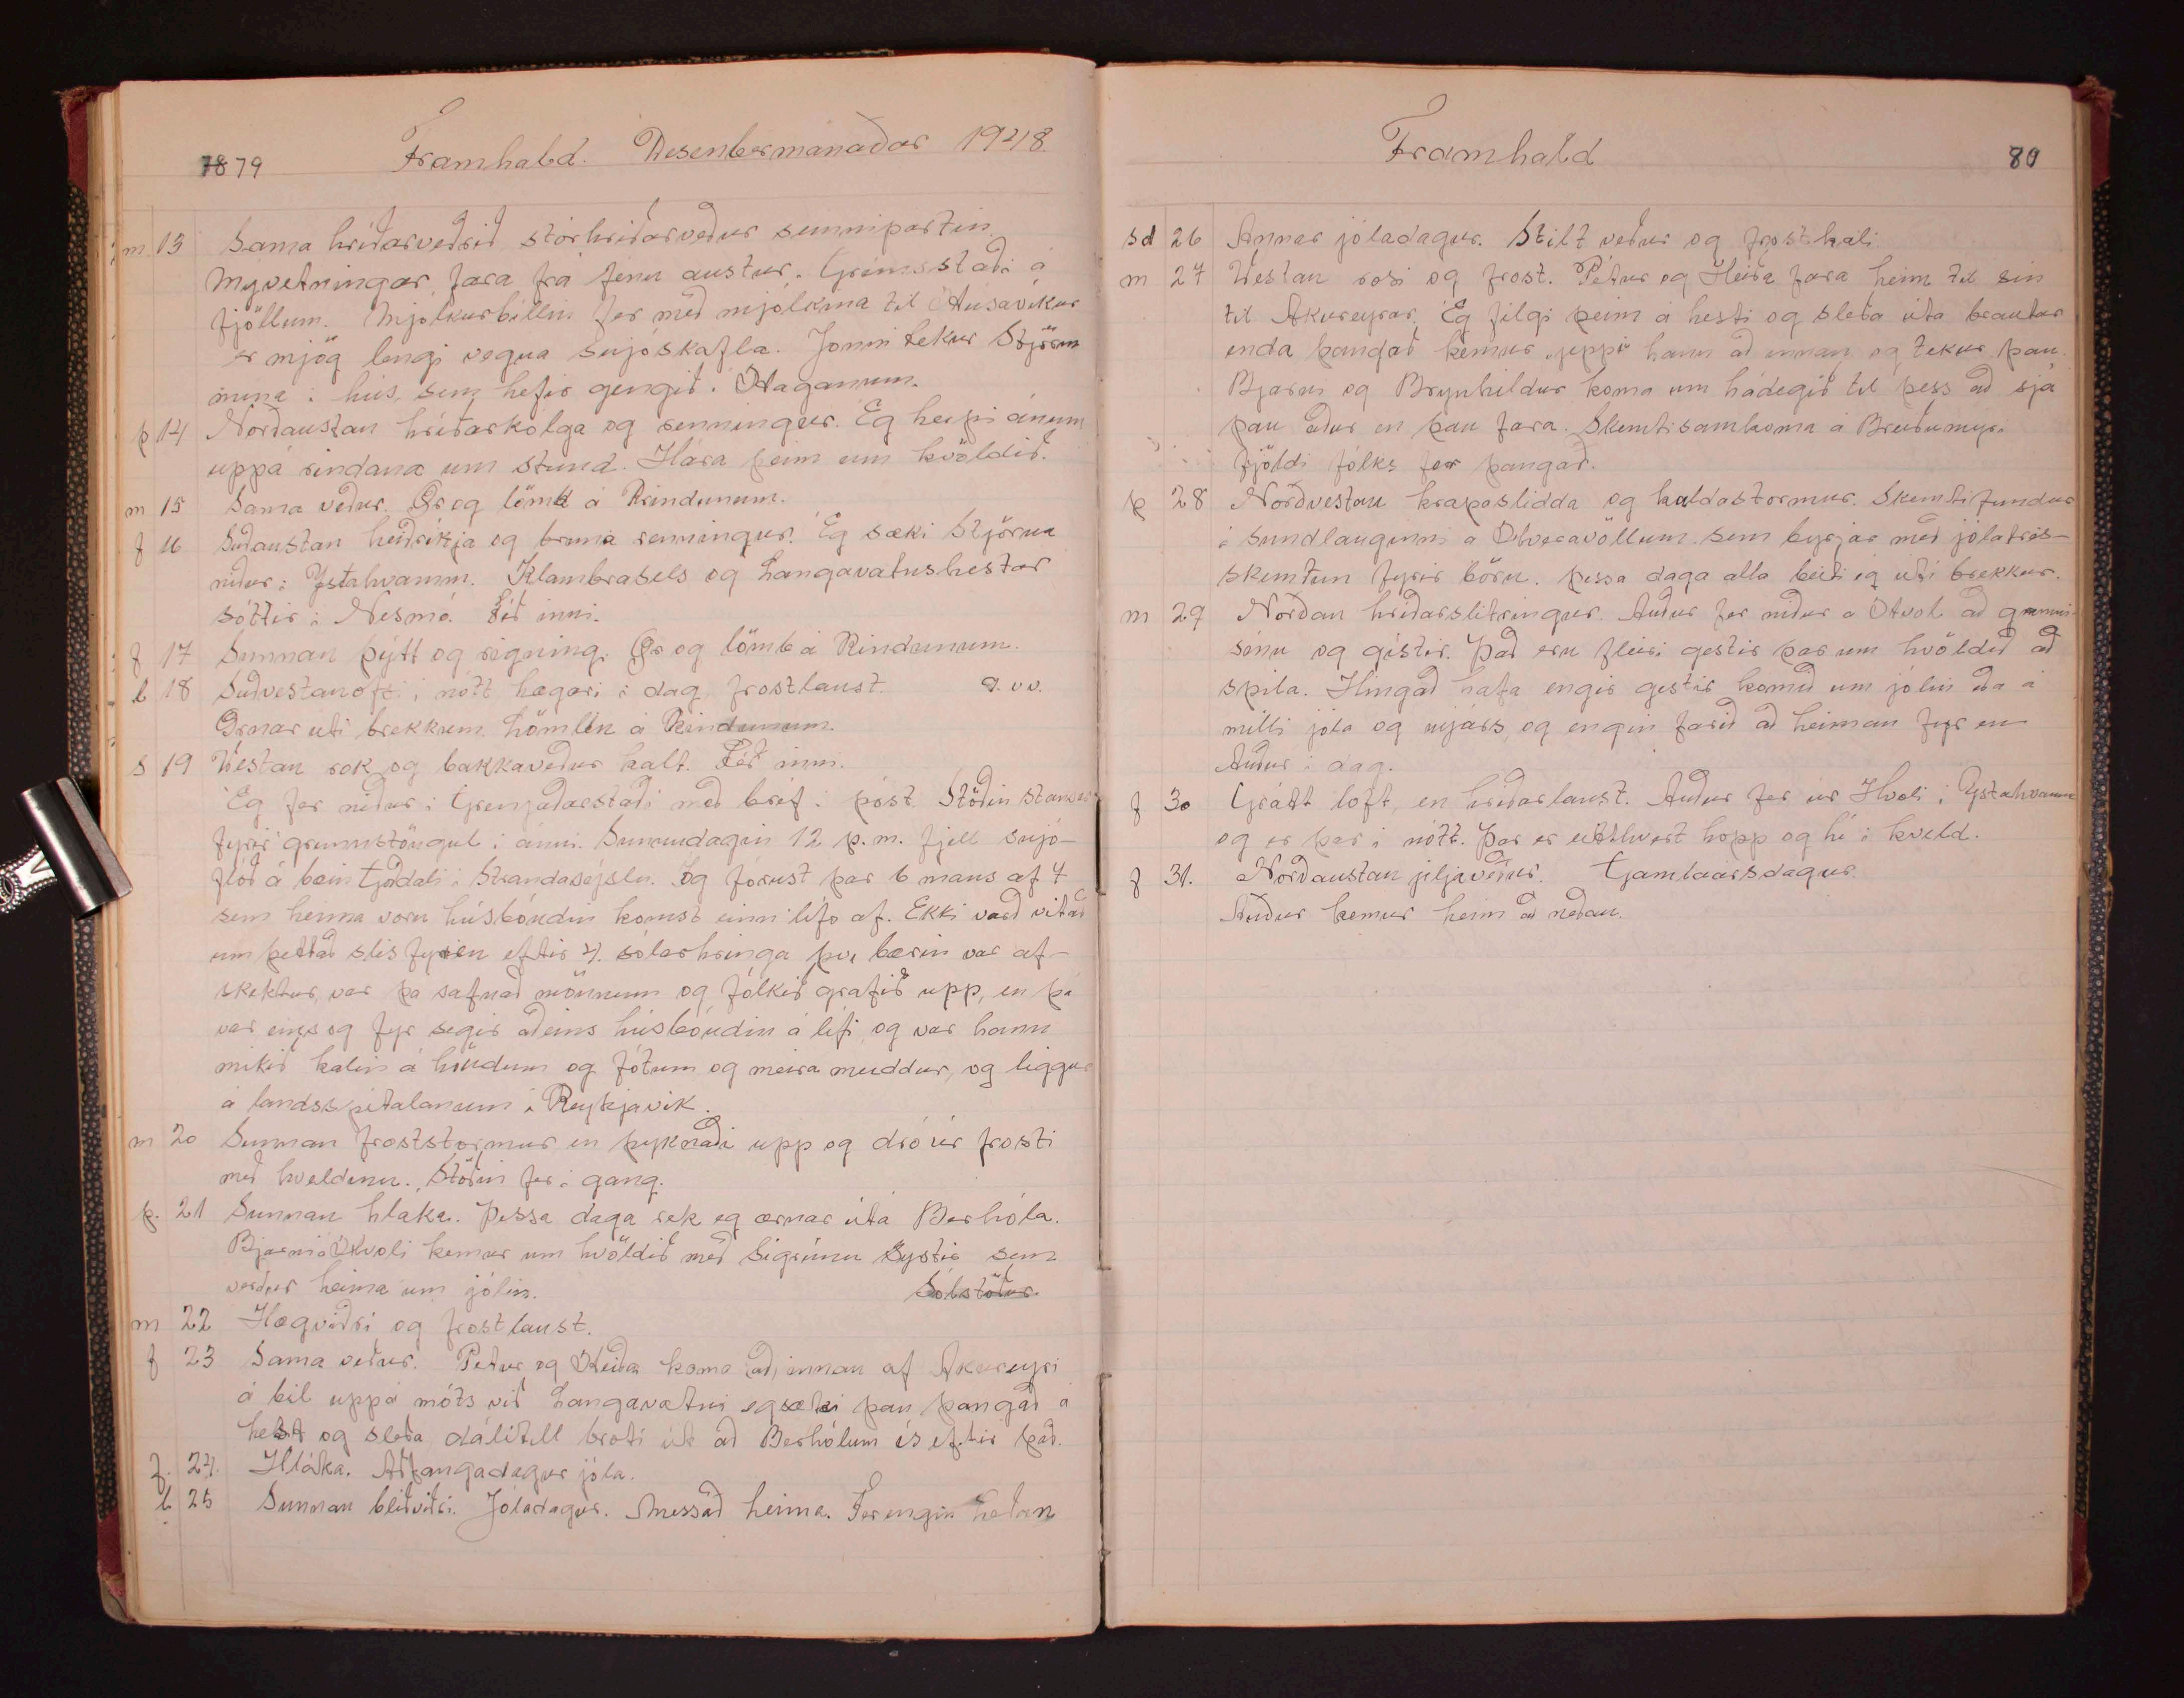 7879 Framhald. Desembermánaðar 1948.
m 13 Sama hríðarveðrið stórhríðarveður seinnipartin.
Mývetningar fara frá fénu austur. Grímsstaði á
fjöllum. Mjólkurbíllin fer með mjólkina til Húsavíkur
er mjög lengi vegna snjóskafla. Jónin tekur Stjörnu
mína í hús, sem hefir gengið í Haganum.
þ 14 Norðaustan hríðarkólga og renningur. Eg heypi ánum
uppá rindana um stund. Hára þeim um kvöldið.
m 15 Sama veður. Ær og lömb á Rindunum.
f 16 Suðaustan heiðríkja og bruna renningur. Eg sæki Stjörnu
niður í Ystahvamm. Klambrasels og Langavatnshestar
sóttir í Nesmó. Féð inni.
f 17 Sunnan þýtt og rigning. Ær og lömb á Rindunum.
l 18 Suðvestanofsi í nótt hægari í dag, frostlaust.
Ærnar úti brekkum. Lömbin á Rindunum.
s 19 Vestan rok og bakkaveður kalt. Féð inni.
Eg fer niður í Grenjaðarstaði með bréf í póst. Stöðin stansar
fyrir grunnstöngul í ánni. Sunnudagin 12 þ.m. fjell snjó-
flóð á bæin Goðdali í Strandasýslu. Og fórust þar 6 mans af 7
sem heima voru húsbóndin komst einn lífs af. Ekki varð vitað
um þettað slis fyrien eftir 4. sólarhringa því bærin var af-
skektur, var þa safnað mönnum og fólkið grafið upp, en þá
var eins og fyr segir aðeins húsbóndin á lífi og var hann
mikið kalin á höndum og fótum og meira meiddur, og liggur
á landsspítalanum í Reykjavík.
m 20 Sunnan froststormur en þyknaði upp og dró úr frosti
með kveldinu. Stöðin fer í gang.
þ. 21 Sunnan hláka. Þessa daga rek eg ærnar útá Berhóla.
Bjarni á Hvoli kemur um kvöldið með Sigrúnu systir sem
verður heima um jólin. Sólstöður.
m 22 Hægviðri og frostlaust.
f 23 Sama veður. Pétur og Heiða koma að innan af Akureyri
á bíl uppá móts við Langavatni eg sæki þau þangað á
hest og sleða dálítill broti út að Berhólum ís eftir það.
f. 24. Hláka. Aðfangadagur jóla.
l 25 Sunnan blíðviðri. Jóladagur. Messað heima. Fer engin héðan
Framhald 80
sd 26 Annar jóladagur. Stilt veður og frostkali.
m 27 Vestan rosi og frost. Pétur og Heiða fara heim til sín
til Akureyrar. Eg filgi þeim á hesti og sleða úta brautar
enda þangað kemur jeppi hann að innan og tekur þau.
Bjarni og Brynhildur koma um hádegið til þess að sjá
þau áður en þau fara. Skemtisamkoma á Breiðumýri
fjöldi fólks fer þangað.
þ 28 Norðvestan krapaslidda og kaldastormur. Skemtifundur
í sundlauginni á Hveravöllum. sem byrjar með jólatrés-
skemtun fyrir börn. Þessa daga alla beiti eg úti brekkur.
m 29 Norðan hríðarslitringur. Auður fer niður á Hvol að
sínu og gistir. Það eru fleiri gestir þar um kvöldið að
spila. Hingað hafa engir gestir komið um jólin eða á
milli jóla og nýjárs, og engin farið að heiman fyr en
Auður í dag.
f 30 Grátt loft, en hríðarlaust. Auður fer úr Hvoli í Ystahvamm
og er þar í nótt. Þar er eitthvert hopp og hí í kveld.
f 31. Norðaustan jiljaveður. Gamlaársdagur.
Auður kemur heim að neðan.